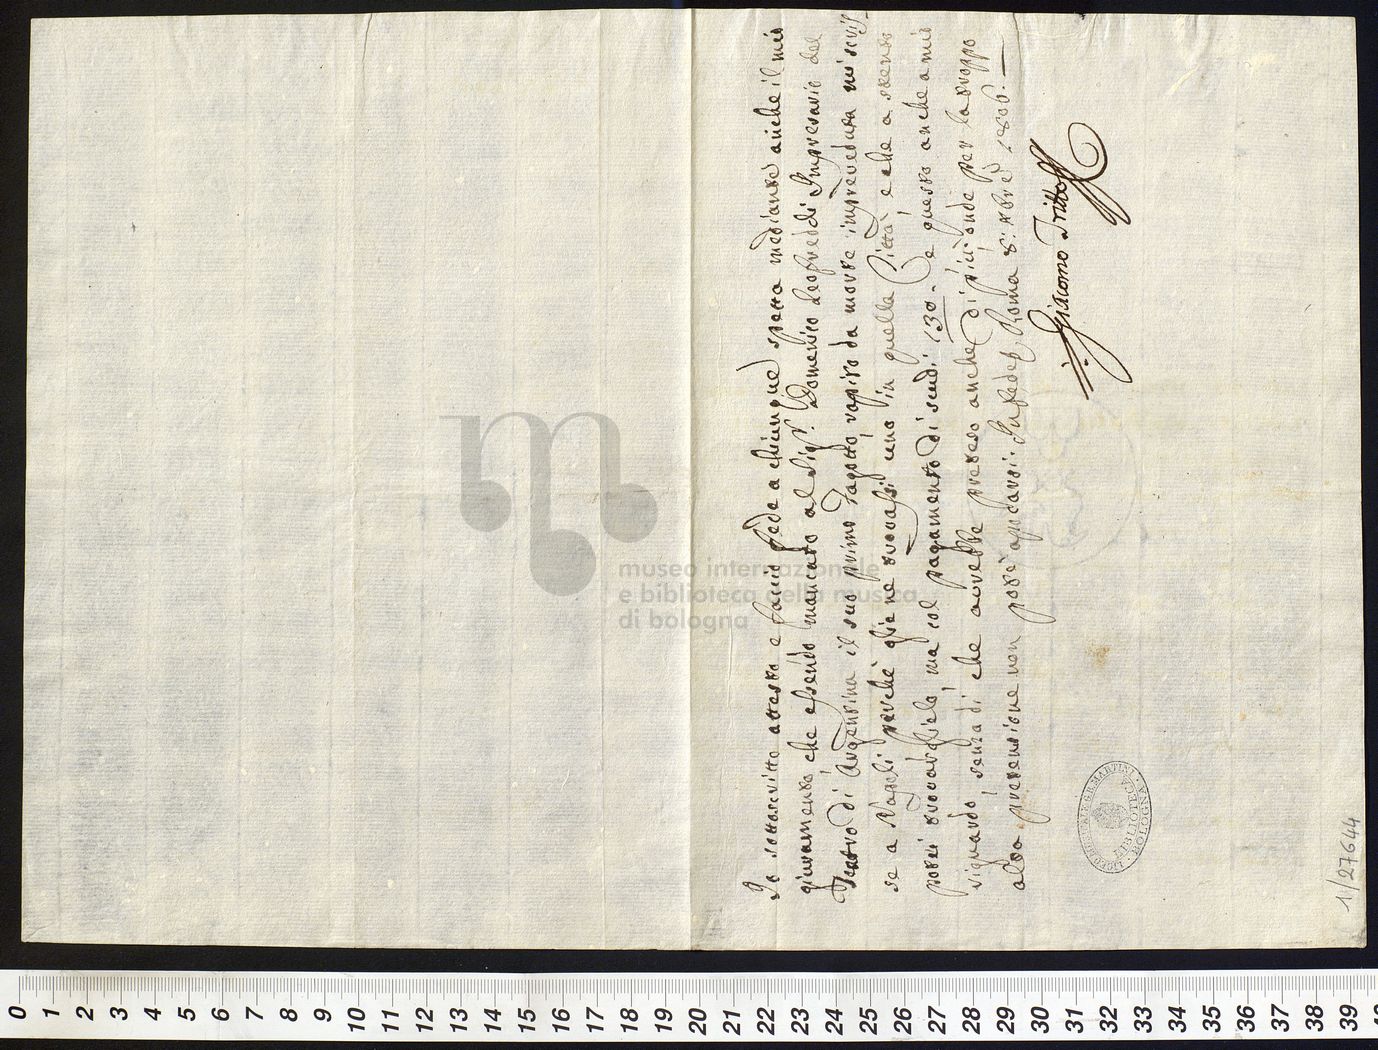 Io sottoscritto attesto e faccio fede a chiunque spetta mediante anche il mio
giuramento che essendo mancato al Sigr. Domenico Deofreddi Impresario del
Teatro di Argentina il suo primo Fagotto rapito da morte impreveduta mi scris-
se a Napoli perchè gliene trovassi uno in quella Città, e che a stento
potei trovarglielo, ma col pagamento di scudi 130. e questo anche a mio
riguardo, senza di che avrebbe preteso anche di più, onde per la troppo
alta pretensione non potè apocarsi. In fede Roma 8: 1806.
Giacomo Tritto
museo internazionale
e biblioteca della musica
di bologna
LICEO MUSICALE G.B. MARTINI
BIBLIOTECA
BOLOGNA
1/27644
0 1 2 3 4 5 6 7 8 9 10 11 12 13 14 15 16 17 18 19 20 21 22 23 24 25 26 27 28 29 30 31 32 33 34 35 36 37 38 39